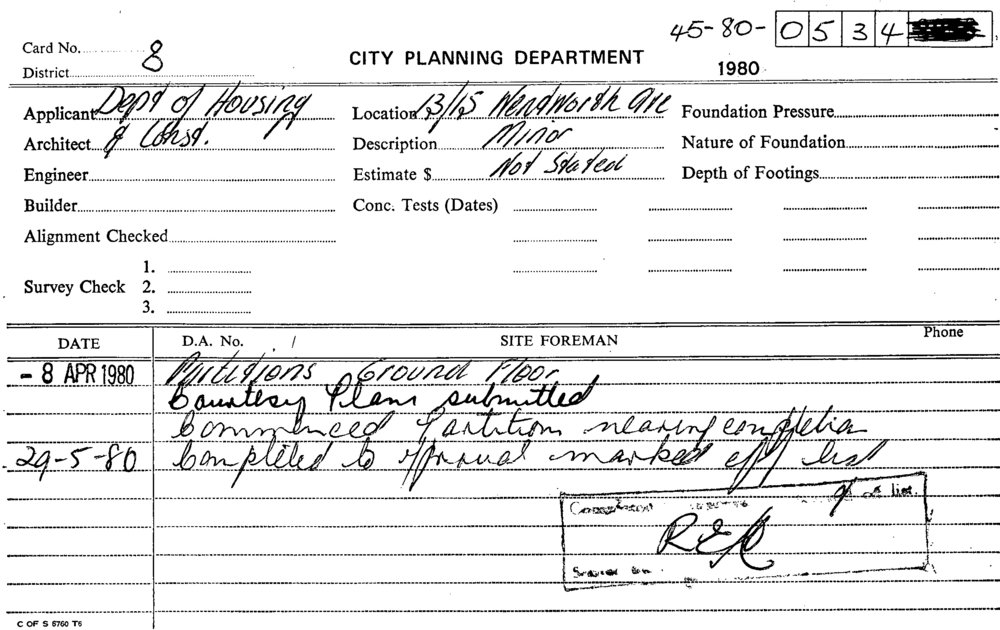 45-80- 0534
Card No. 8
District
CITY PLANNING DEPARTMENT
1980
Applicant Dept of Housing
Location 13/15 Wentworth Ave
Foundation Pressure
Architect & Const.
Description Minor
Nature of Foundation
Engineer
Estimate $ Not Stated
Depth of Footings
Builder
Conc. Tests (Dates)
Alignment Checked
1.
Survey Check 2.
3.
DATE D.A. No. / SITE FOREMAN Phone
- 8 APR 1980 Partitions Ground Floor
Courtesy Plans submitted
Commenced Partitions nearing completion
29-5-80 Completed to approval marked off list
list.
C OF S 8760 T6